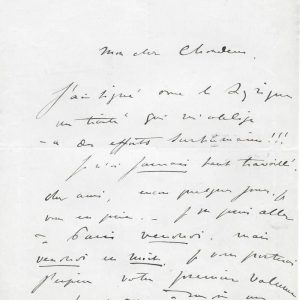 Mon cher Choudens.
J'ai signé avec le Lyrique
un traité qui m'oblige
à des efforts surhumains!!!
Je n'ai jamais tant travaillé.
cher ami, encore quelques jours, je
vous en prie. Je ne puis aller
à Paris vendredi. mais
vendredi en huit. Je vous porterai
j'espère votre premier volume